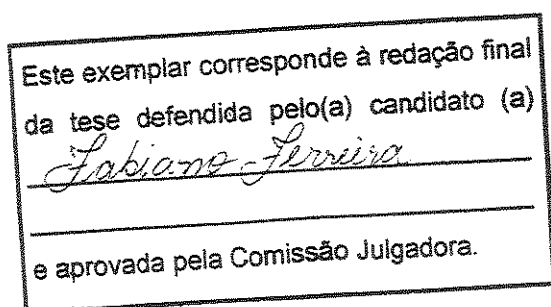 Este exemplar corresponde à redação final
da tese defendida pelo(a) candidato (a)
Fabiano Ferreira
e aprovada pela Comissão Julgadora.